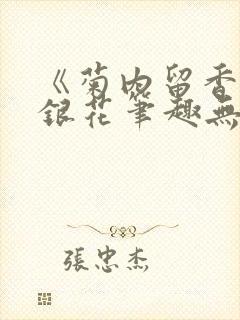 《菊内留香
銀花筆趣無
張忠杰